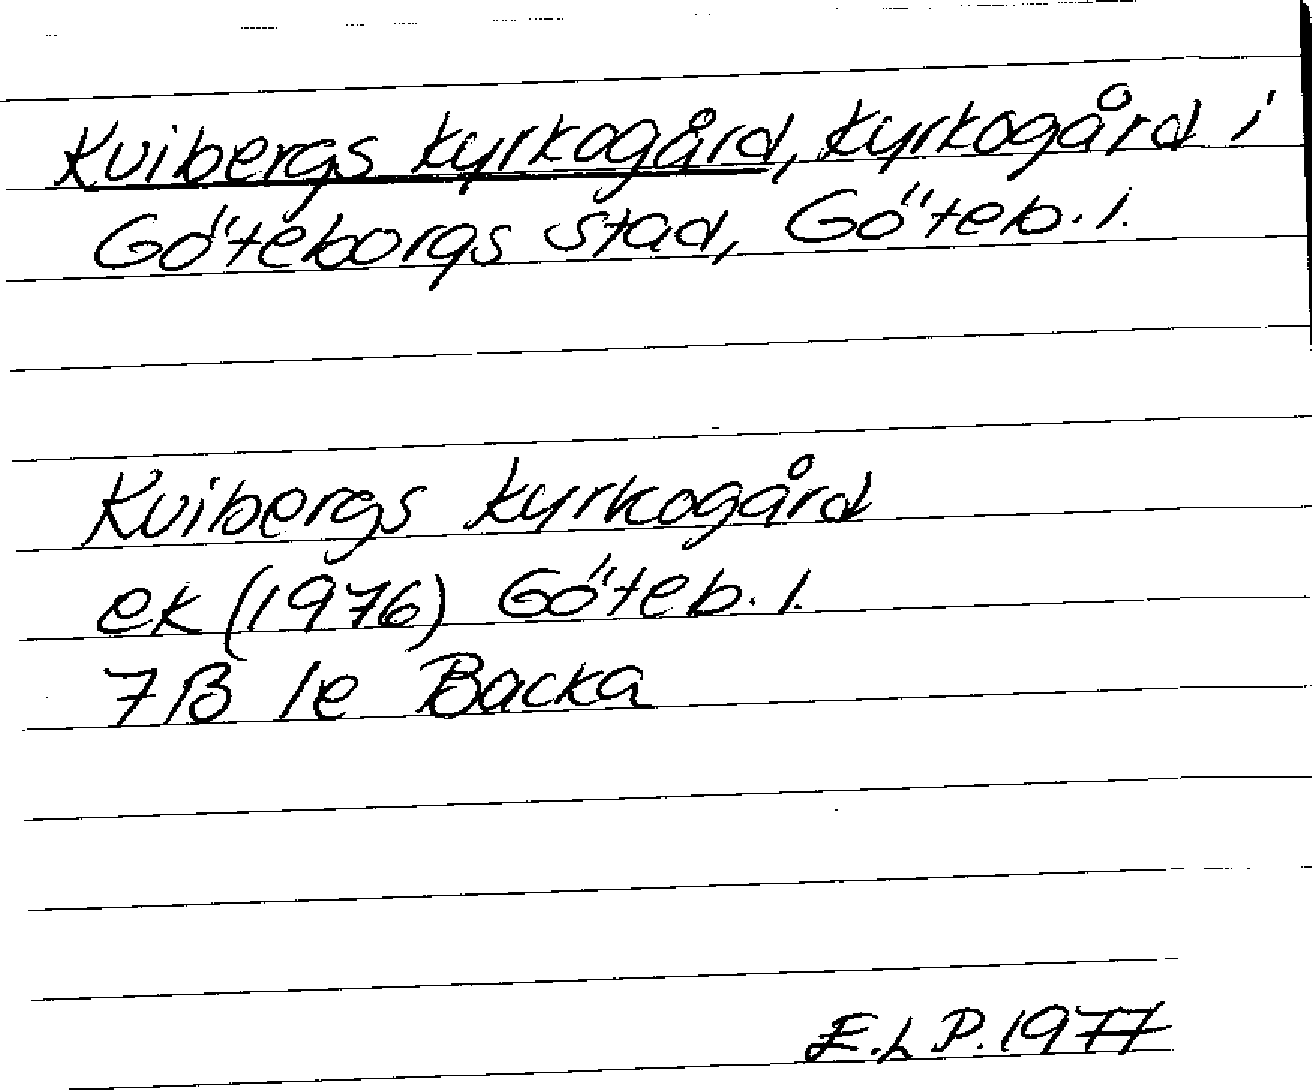 Kvibergs kyrkogård, kyrkogård i
Göteborgs stad, Göteb. l.
Kvibergs kyrkogård
ek (1976) Göteb. l.
7B 1e Backa
E.L P. 1977